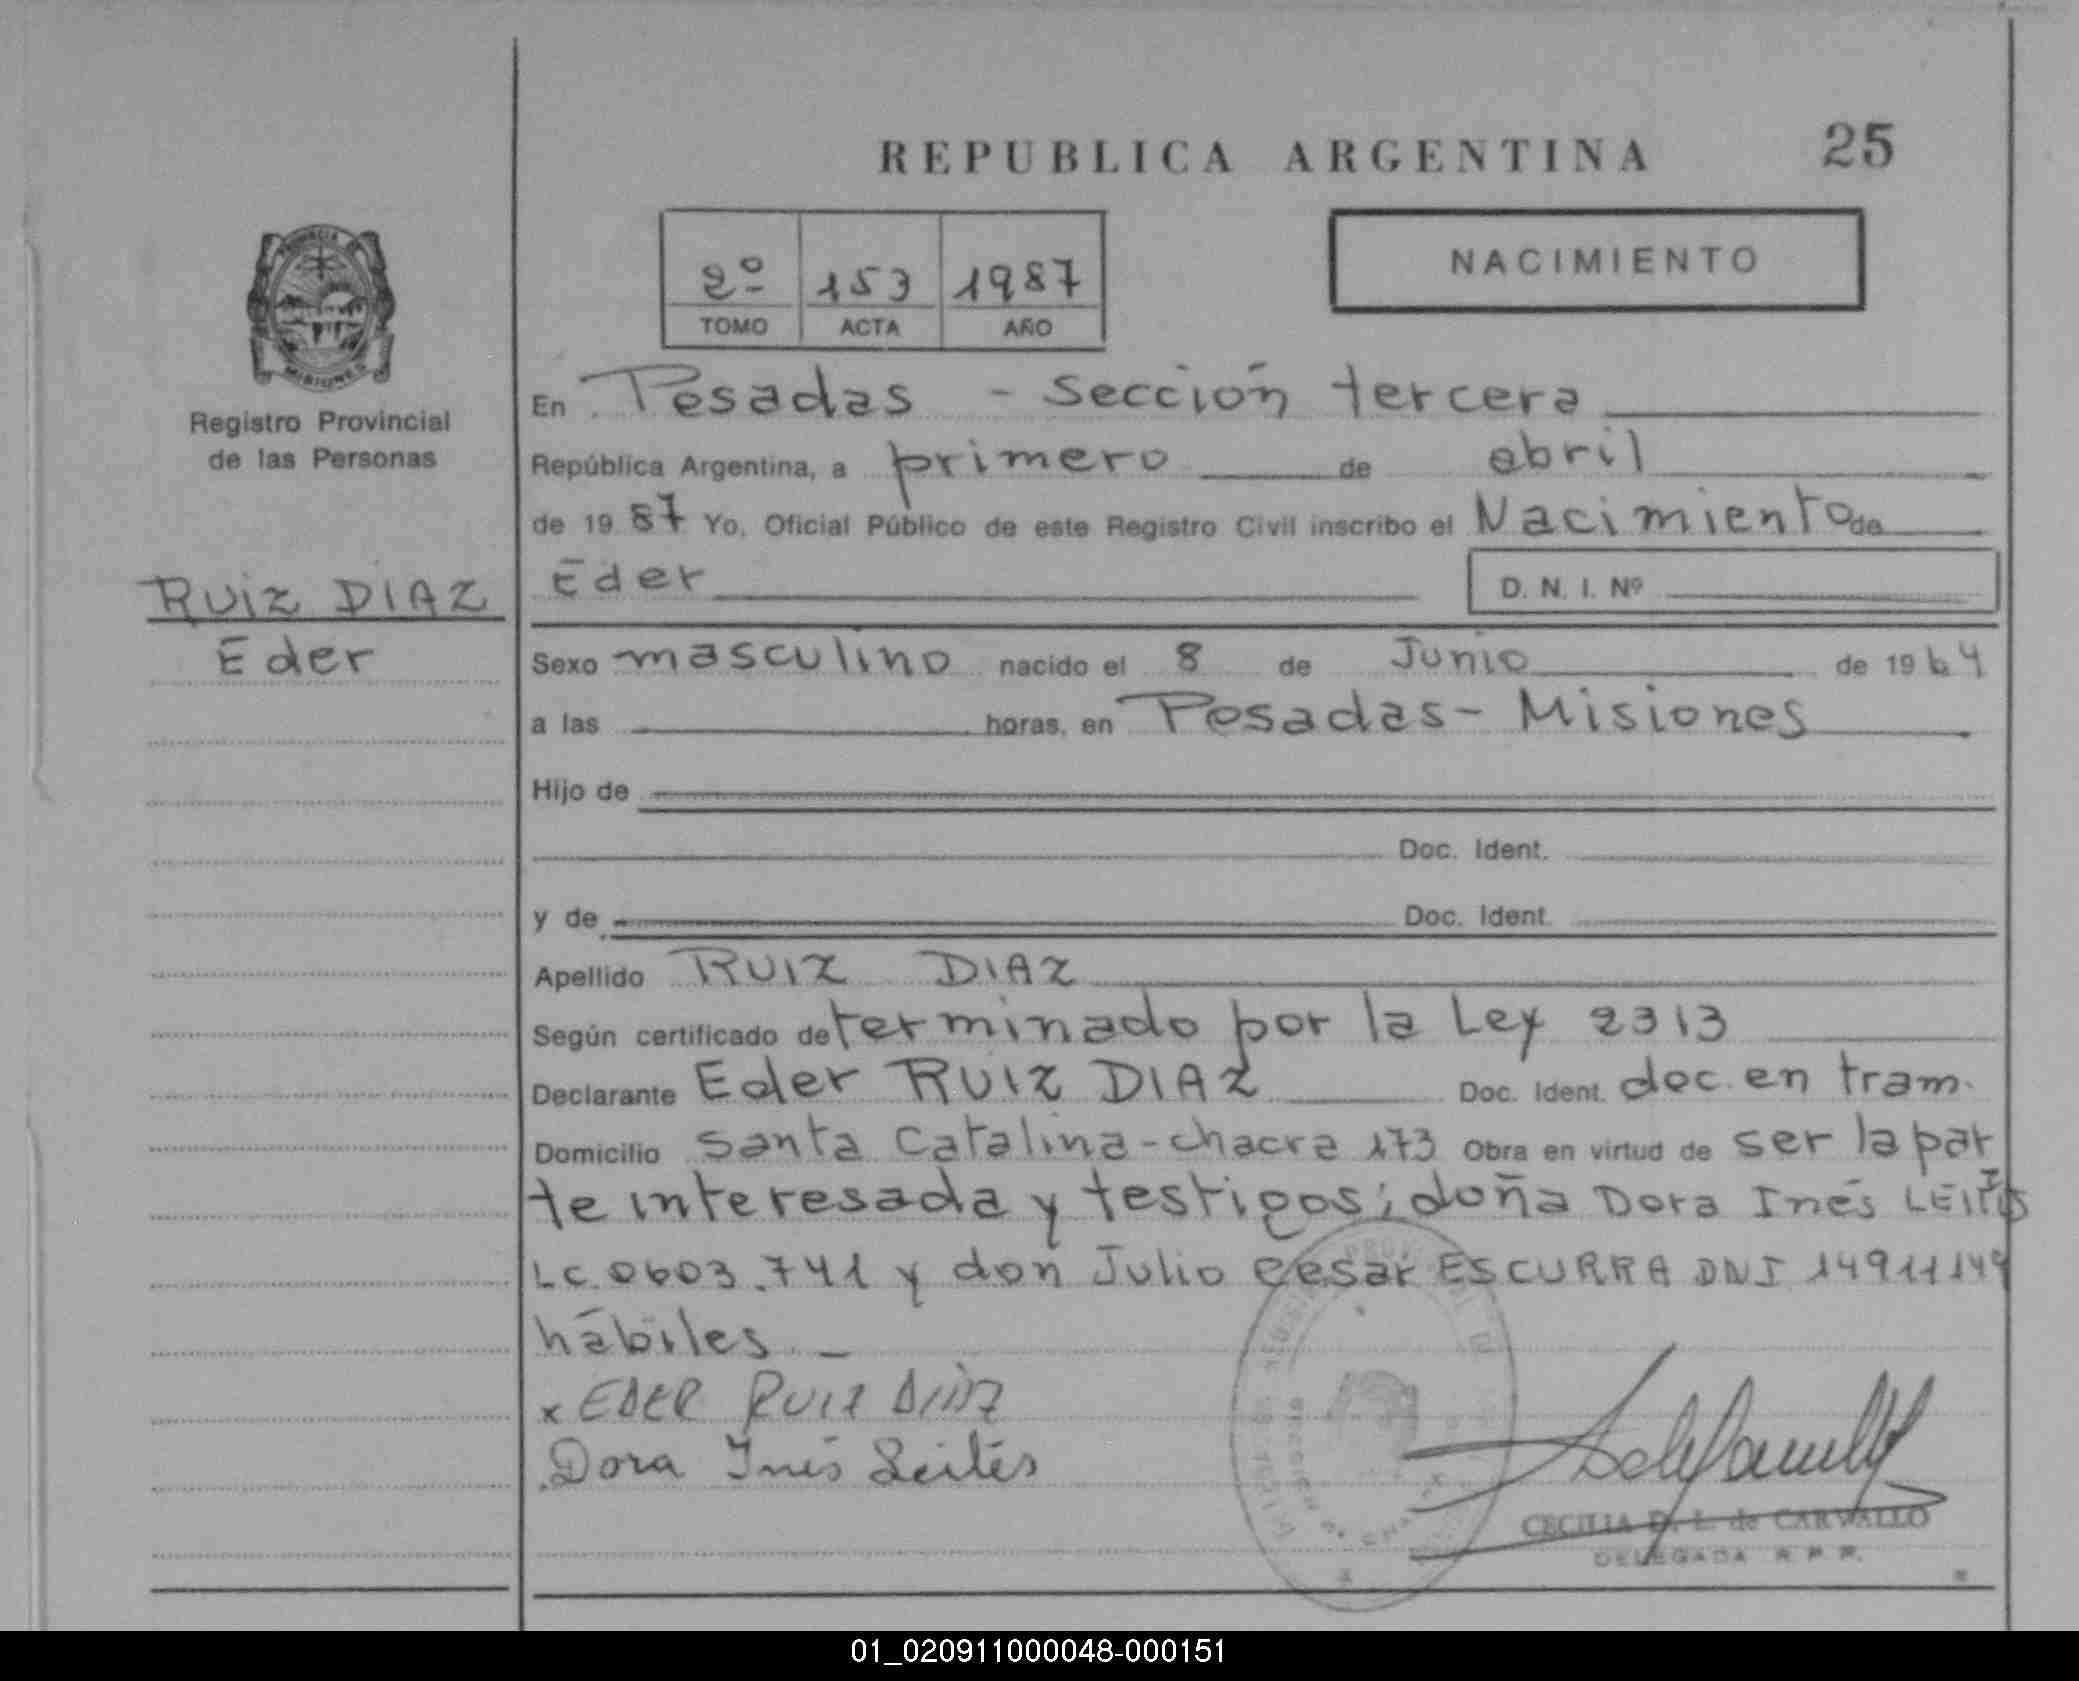 REPUBLICA ARGENTINA 25
2º 153 1987
TOMO ACTA AÑO
NACIMIENTO
PROVINCIA DE
MISIONES
Registro Provincial
de las Personas
RUIZ DIAZ
Eder
En Posadas - sección tercera
República Argentina, a primero de abril
de 19 87 Yo, Oficial Público de este Registro Civil inscribo el Nacimiento de
Eder D. N. I. Nº
Sexo masculino nacido el 8 de Junio de 19 64
a las horas, en Posadas - Misiones
Hijo de
Doc. Ident.
y de Doc. Ident.
Apellido RUIZ DIAZ
Según certificado determinado por la Ley 2313
Declarante Eder RUIZ DIAZ Doc. Ident. doc. en tram.
Domicilio Santa Catalina - chacra 173 Obra en virtud de ser la par
te interesada y testigos; doña Dora Inés LEITES
LC. 0603.741 y don Julio cesar ESCURRA DNI 14911149
hábiles
x EDER RUIZ DIAZ
Dora Inés Leites
CECILIA D. L. de CARVALLO
DELEGADA R. P. P.
01_020911000048-000151